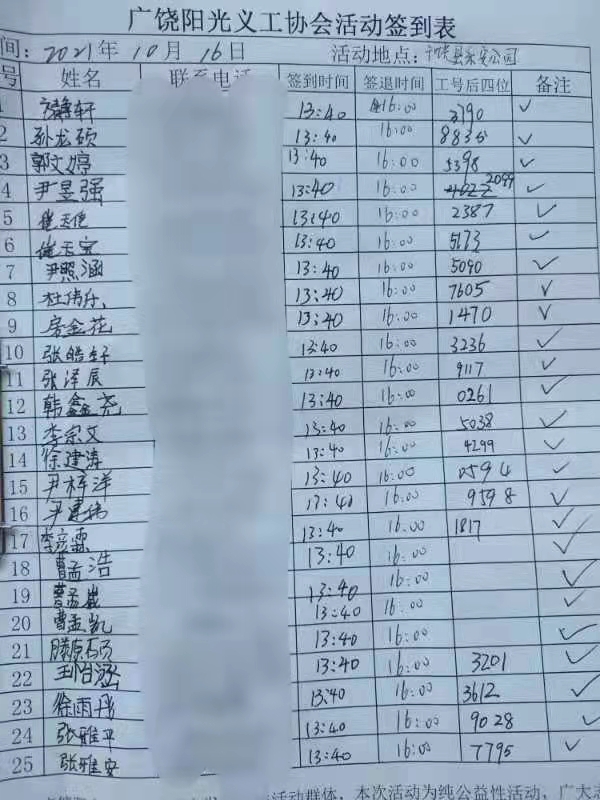 广饶阳光义工协会活动签到表
间: 2021年 10 月 16日 活动地点: 广饶县乐安公园
号 姓名 联系电话 签到时间 签退时间 工号后四位 备注
1 轩 13:40 16:00 3790 ✓
2 孙龙硕 13:40 16:00 8835 ✓
3 郭文婷 13:40 16:00 5398 ✓
4 尹昱强 13:40 16:00 2099 ✓
5 13:40 16:00 2387 ✓
6 13:40 16:00 5173 ✓
7 尹熙涵 13:40 16:00 5090 ✓
8 杜伟乐 13:40 16:00 7605 ✓
9 房金花 13:40 16:00 1470 ✓
10 张皓轩 13:40 16:00 3236 ✓
11 张泽辰 13:40 16:00 9117 ✓
12 韩鑫尧 13:40 16:00 0261 ✓
13 李宗文 13:40 16:00 5038 ✓
14 徐建涛 13:40 16:00 4299 ✓
15 尹梓洋 13:40 16:00 0594 ✓
16 尹建伟 13:40 16:00 9598 ✓
17 李彦霖 13:40 16:00 1817 ✓
18 曹孟浩 13:40 16:00 ✓
19 曹孟崴 13:40 16:00 ✓
20 曹孟凯 13:40 16:00 ✓
21 滕原硕 13:40 16:00 ✓
22 刘怡涵 13:40 16:00 3201 ✓
23 徐雨彤 13:40 16:00 3612 ✓
24 张雅平 13:40 16:00 9028 ✓
25 张雅安 13:40 16:00 7795 ✓
活动群体，本次活动为纯公益性活动，广大志